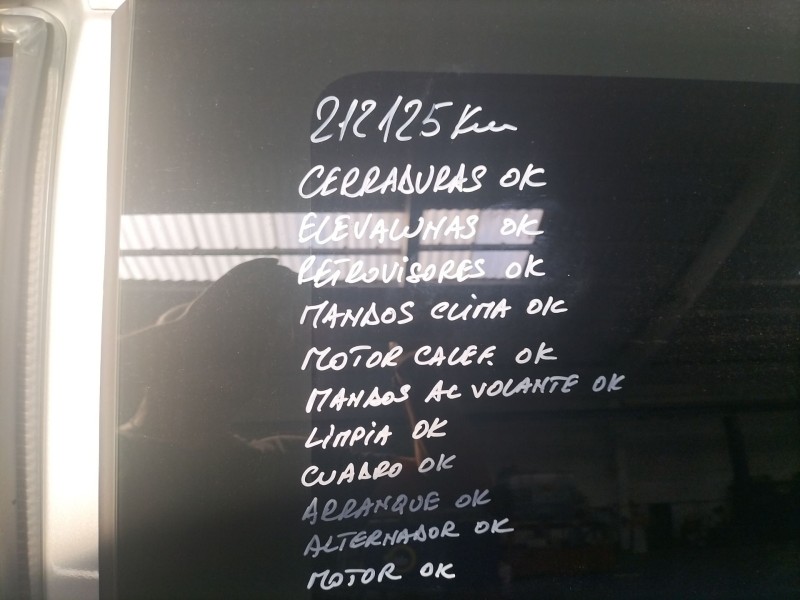 212125 Km
CERRADURAS OK
ELEVALUNAS OK
RETROVISORES OK
MANDOS CLIMA OK
MOTOR CALEF. OK
MANDOS AL VOLANTE OK
LIMPIA OK
CUADRO OK
ARRANQUE OK
ALTERNADOR OK
MOTOR OK